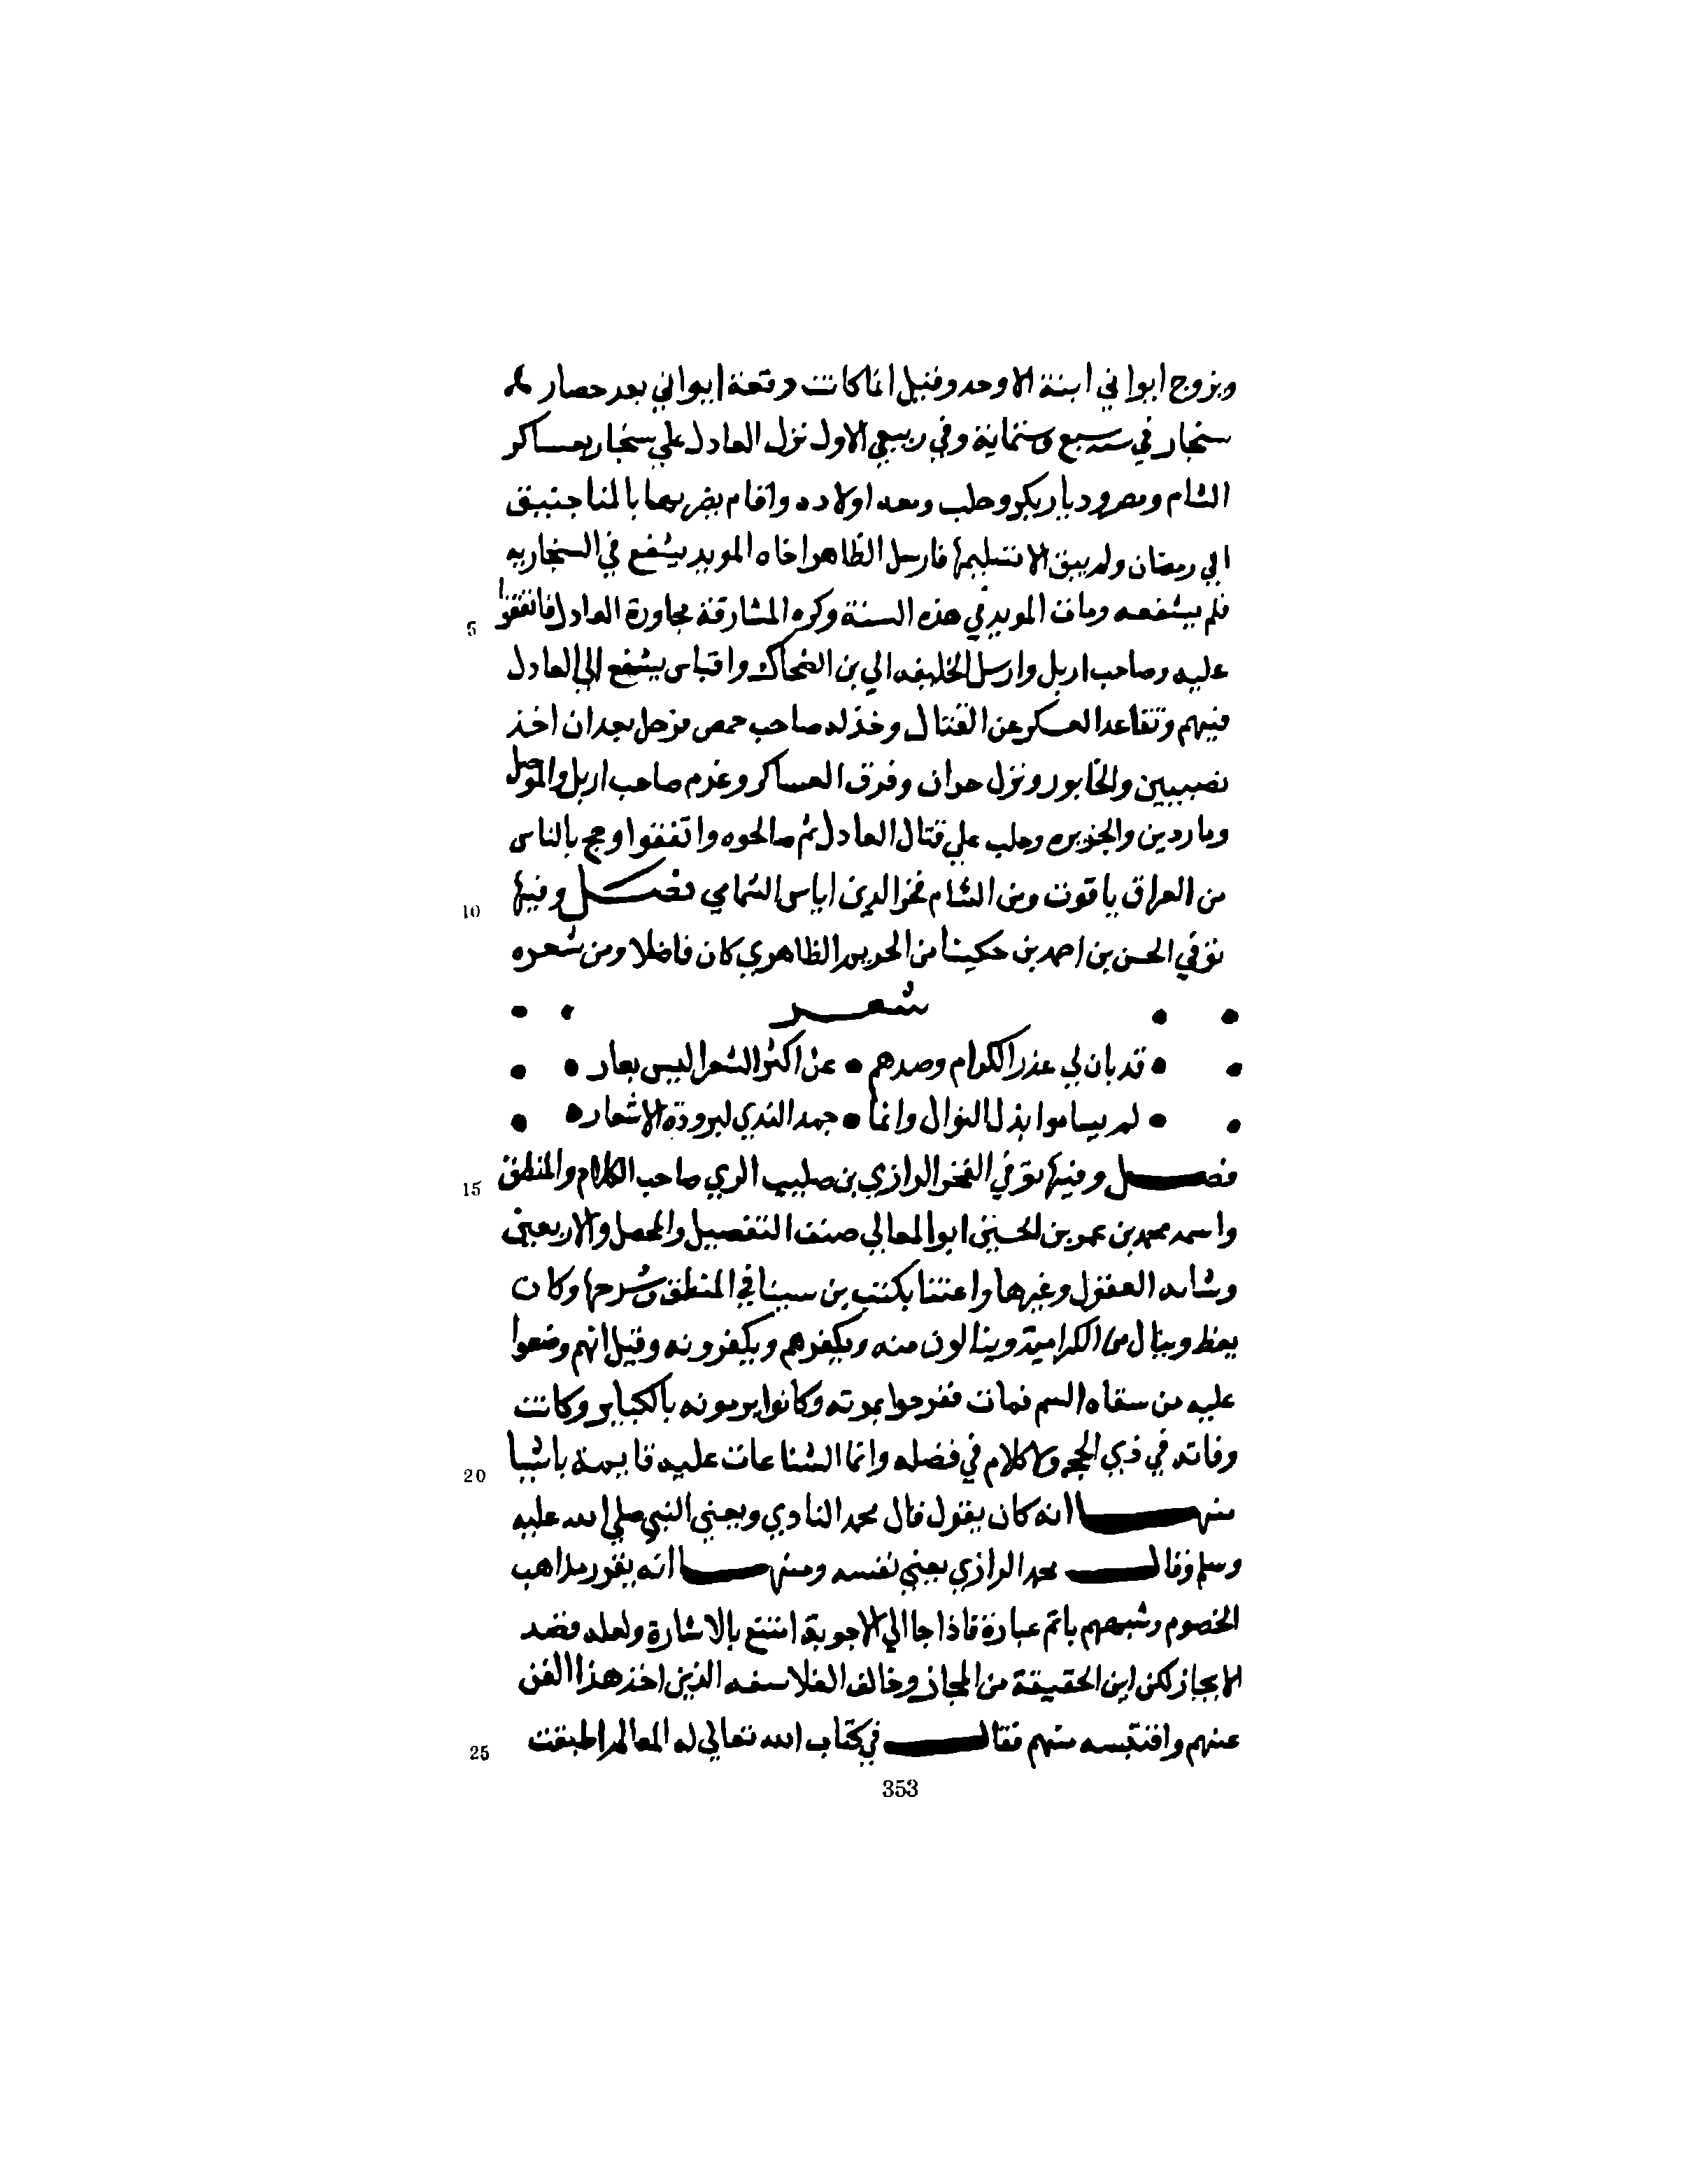 وتزوج ايواني ابنة الاوحد وقيل انما كانت وقعة ايواني بعد حصار
سنجار في سنه سبع وستماية وفي ربيع الاول نزل العادل علي سنجار بعساكر
الشام ومصر وديار بكر وحلب ومعه اولاده واقام يضربها بالمناجنيق
الي رمضان ولم يبق الا تسليمها فارسل الظاهر اخاه المويد يشفع في السنجاريه
فلم يشفعه ومات المويد في هذه السنة وكره المشارقة مجاورة العادل فاتفقوا
5
عليه وصاحب اربل وارسل الخليفه الي بن الضحاك واقباس يشفع الي العادل
فيهم وتقاعد العسكر عن القتال وخذله صاحب حمص فرحل بعد ان اخذ
نصيبين والخابور ونزل حران وفرق العساكر وعزم صاحب اربل والموصل
وماردين والجزيره وحلب علي قتال العادل ثم صالحوه واتفقوا وحج بالناس
من العراق ياقوت ومن الشام فخر الدين اياس الشامي فصل وفيها
10
توفي الحسن بن احمد بن حكينا من الحريم الظاهري كان فاضلا ومن شعره
شعر
قد بان لي عذر الكرام وصدهم • عن اكثر الشعرا ليس بعار
لم يساموا بذل النوال وانما • جمد الندي لبرودة الاشعار
فصل وفيها توفي الفخر الرازي بن خطيب الري صاحب الكلام والمنطق
15
واسمه محمد بن عمر بن الحسين ابو المعالي صنف التفصيل والمحصل والاربعين
العقول وغيرها واعتنا بكتب بن سينا في المنطق وشرحها وكان
يعظ وينال من الكرامية وينالون منه ويكفرهم ويكفرونه وقيل انهم وضعوا
عليه من سقاه السم فمات ففرحوا بموته وكانوا يرمونه بالكباير وكانت
وفاته في ذي الحجه ولا كلام في فضله وانما الشناعات عليه قايمة باشيا
20
منها انه كان يقول قال محمد النادي ويعني النبي صلي الله عليه
وسلم وقال محمد الرازي يعني نفسه ومنها انه يقرر مذاهب
الخصوم وشبههم باتم عبارة فاذا جا الي الاجوبة اقتنع بالاشارة ولعله قصد
الايجاز لكن اين الحقيقة من المجاز وخالف الفلاسفه الذين اخذ هذا الفن
عنهم واقتبسه منهم فقال في كتاب الله تعالي له المعالم اطبقت
25
353